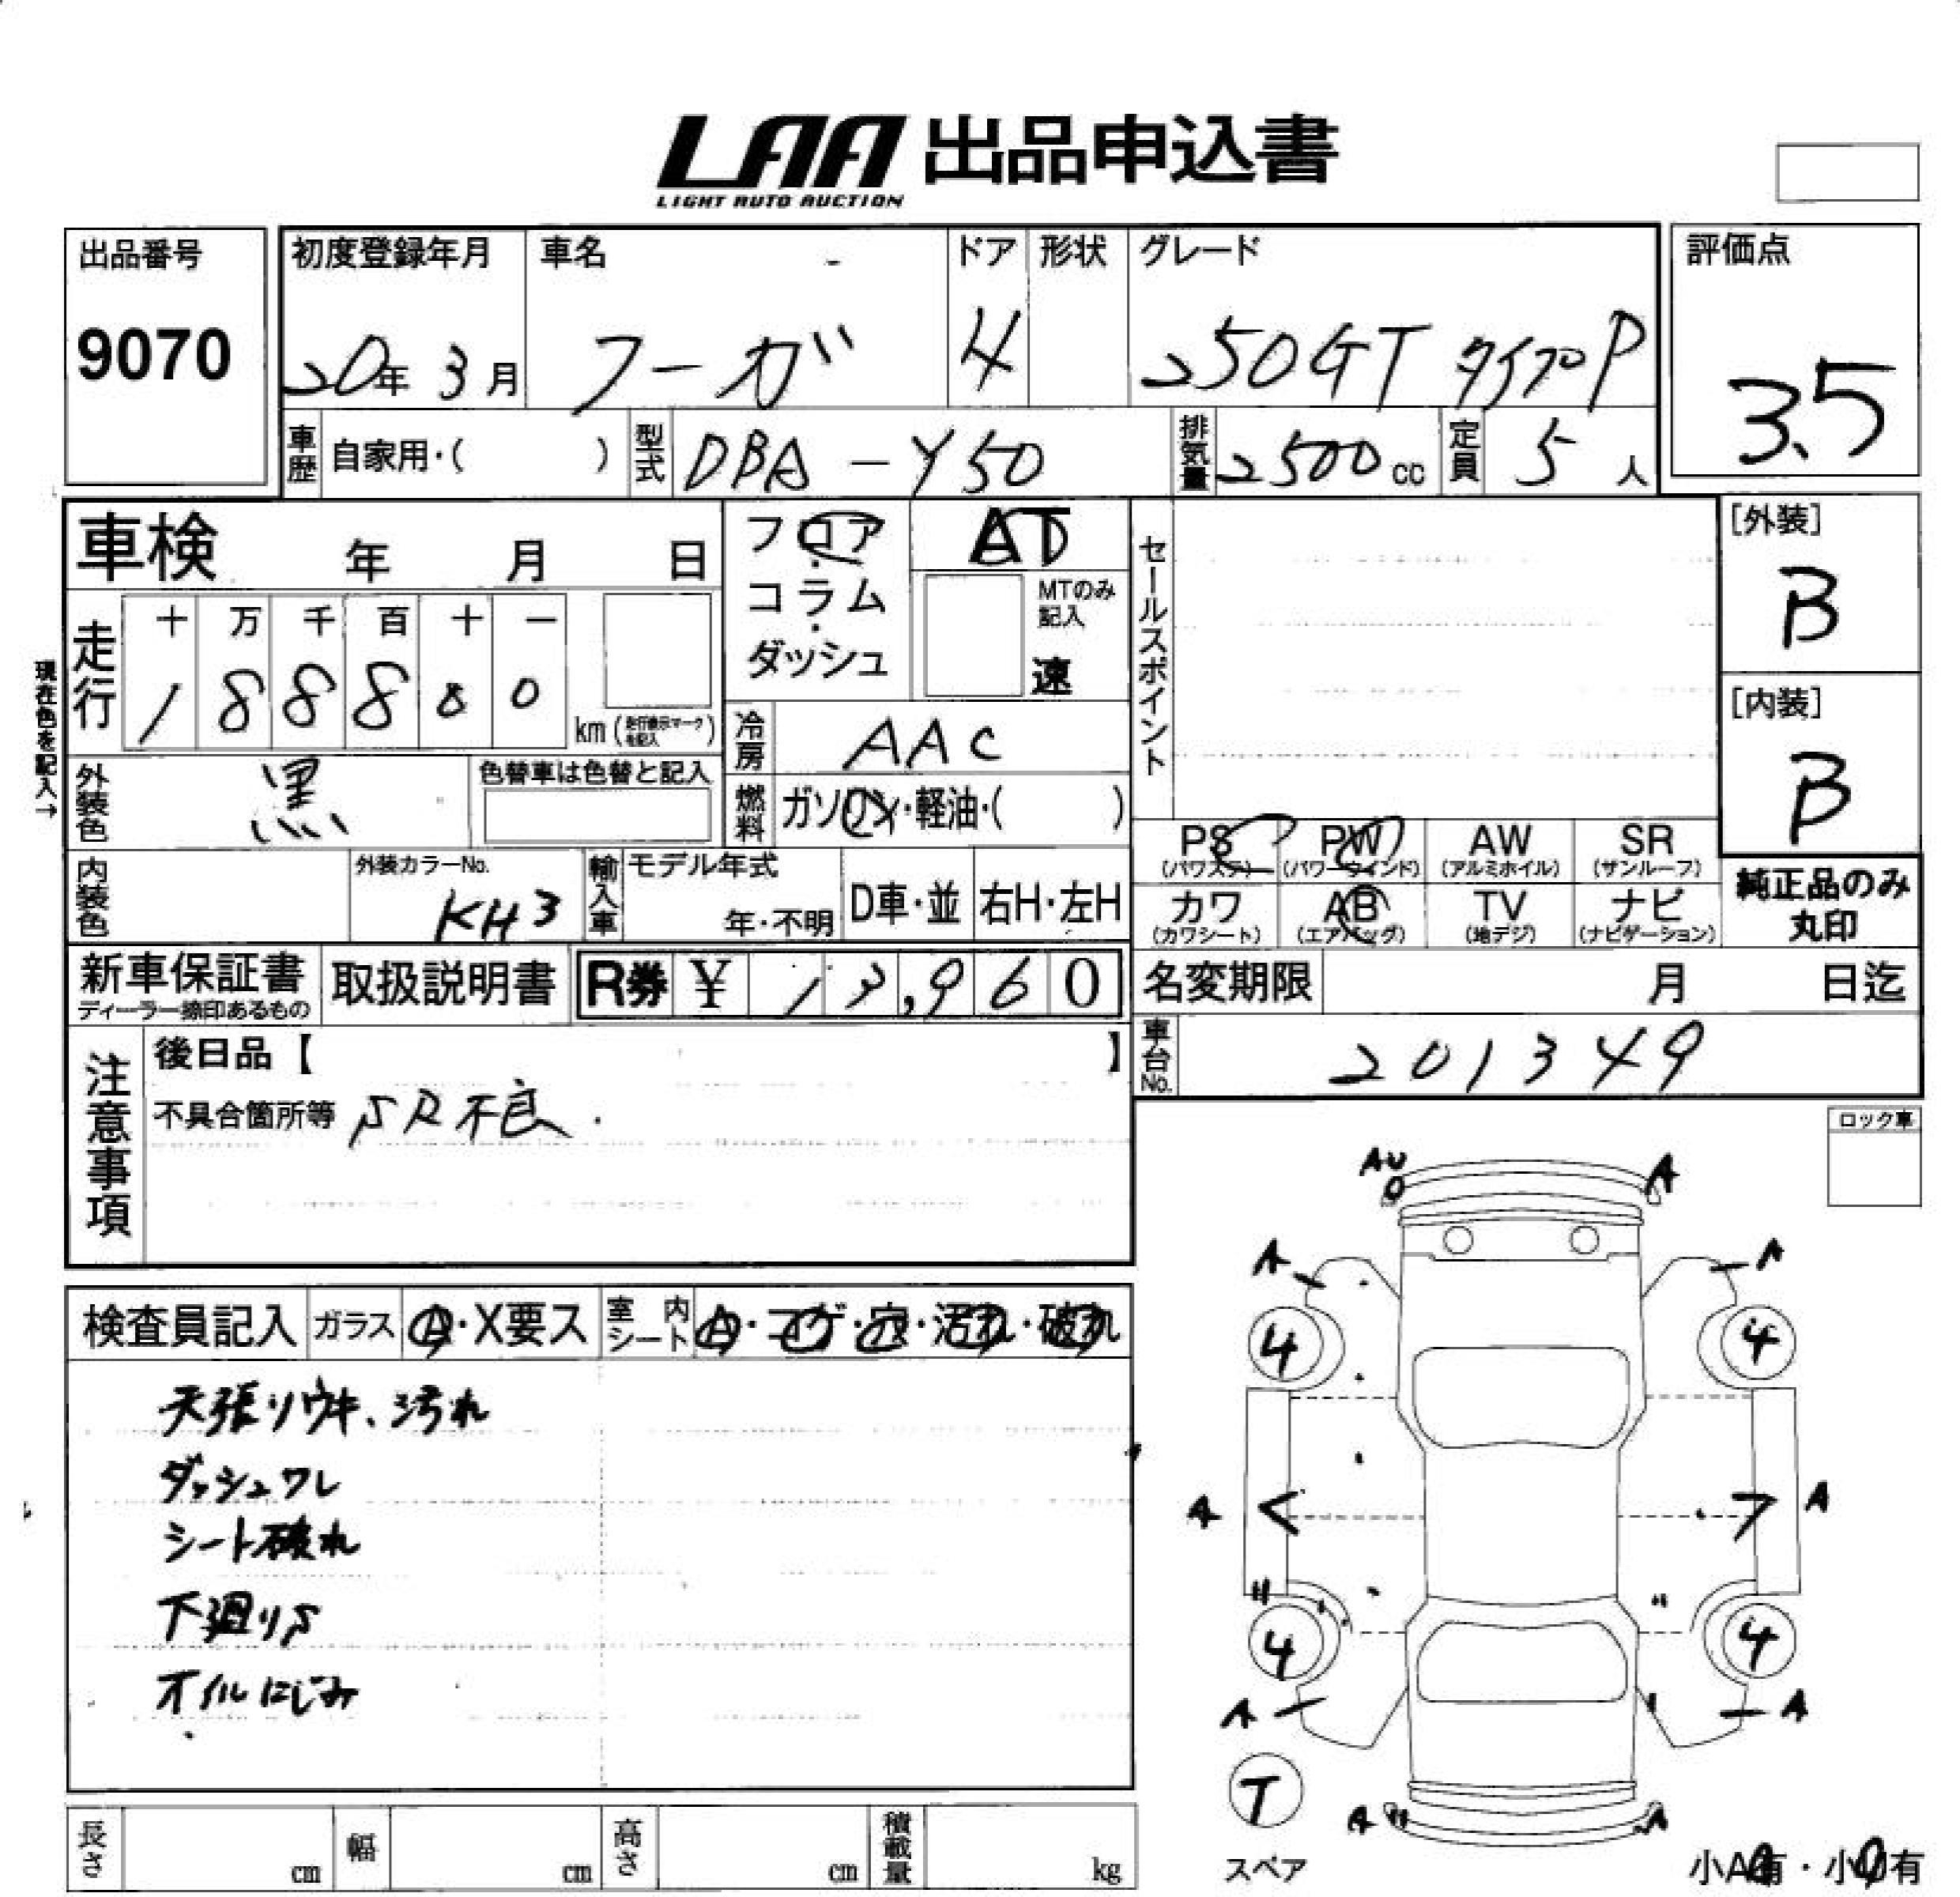 LAA 出品申込書
LIGHT AUTO AUCTION
出品番号
9070
初度登録年月
20年 3月
車名
フーガ
ドア
4
形状
グレード
250GT タイプP
評価点
3.5
車歴 自家用・( )
型式 DBA-Y50
排気量 2500cc
定員 5人
車検 年 月 日
フロア・コラム・ダッシュ
AT
MTのみ記入
速
セールスポイント
[外装]
B
[内装]
B
現在色を記入→
走行
十 万 千 百 十 一
1 8 8 8 8 0
km (走行表示マークを記入)
冷房 AAC
外装色 黒
色替車は色替と記入
燃料 ガソリン・軽油・( )
PS PW AW SR
(パワステ) (パワーウインド) (アルミホイル) (サンルーフ)
カワ AB TV ナビ
(カワシート) (エアバッグ) (地デジ) (ナビゲーション)
純正品のみ丸印
内装色
外装カラーNo.
KH3
輸入車
モデル年式
年・不明
D車・並
右H・左H
新車保証書
ディーラー捺印あるもの
取扱説明書
R券 ¥ 13,960
名変期限 月 日迄
車台No. 201349
注意事項
後日品【 】
不具合箇所等 SR不良.
ロック車
検査員記入
ガラス A・X要ス
室内シート A・コゲ・穴・汚れ・破れ
天張りウキ、汚れ
ダッシュワレ
シート破れ
下廻りS
オイルにじみ
AU A
A A
4 4
A A
4 4
A A
T
スペア
A A
長さ cm
幅 cm
高さ cm
積載量 kg
小A有・小U有